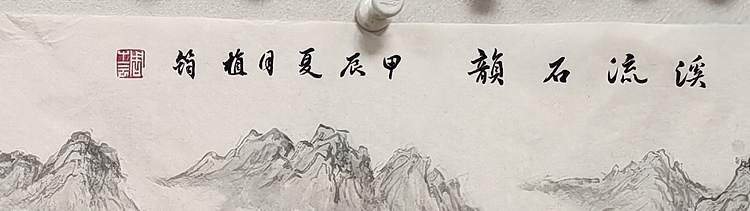 溪流石韻 甲辰夏月植筠